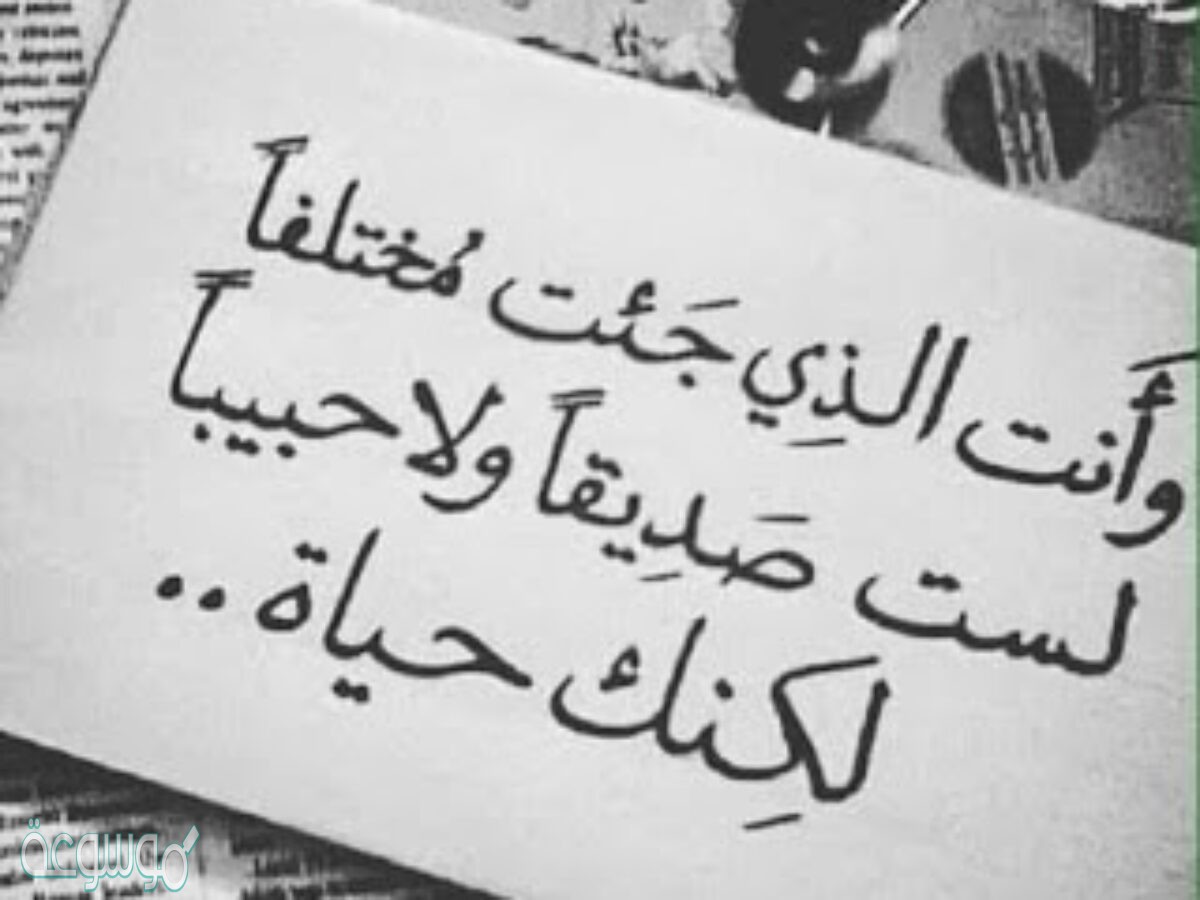 وأَنت الذِي جَئت مُختلفاً
لست صَدِيقاً ولا حبيباً
لكِنك حياة ..
موسوعة